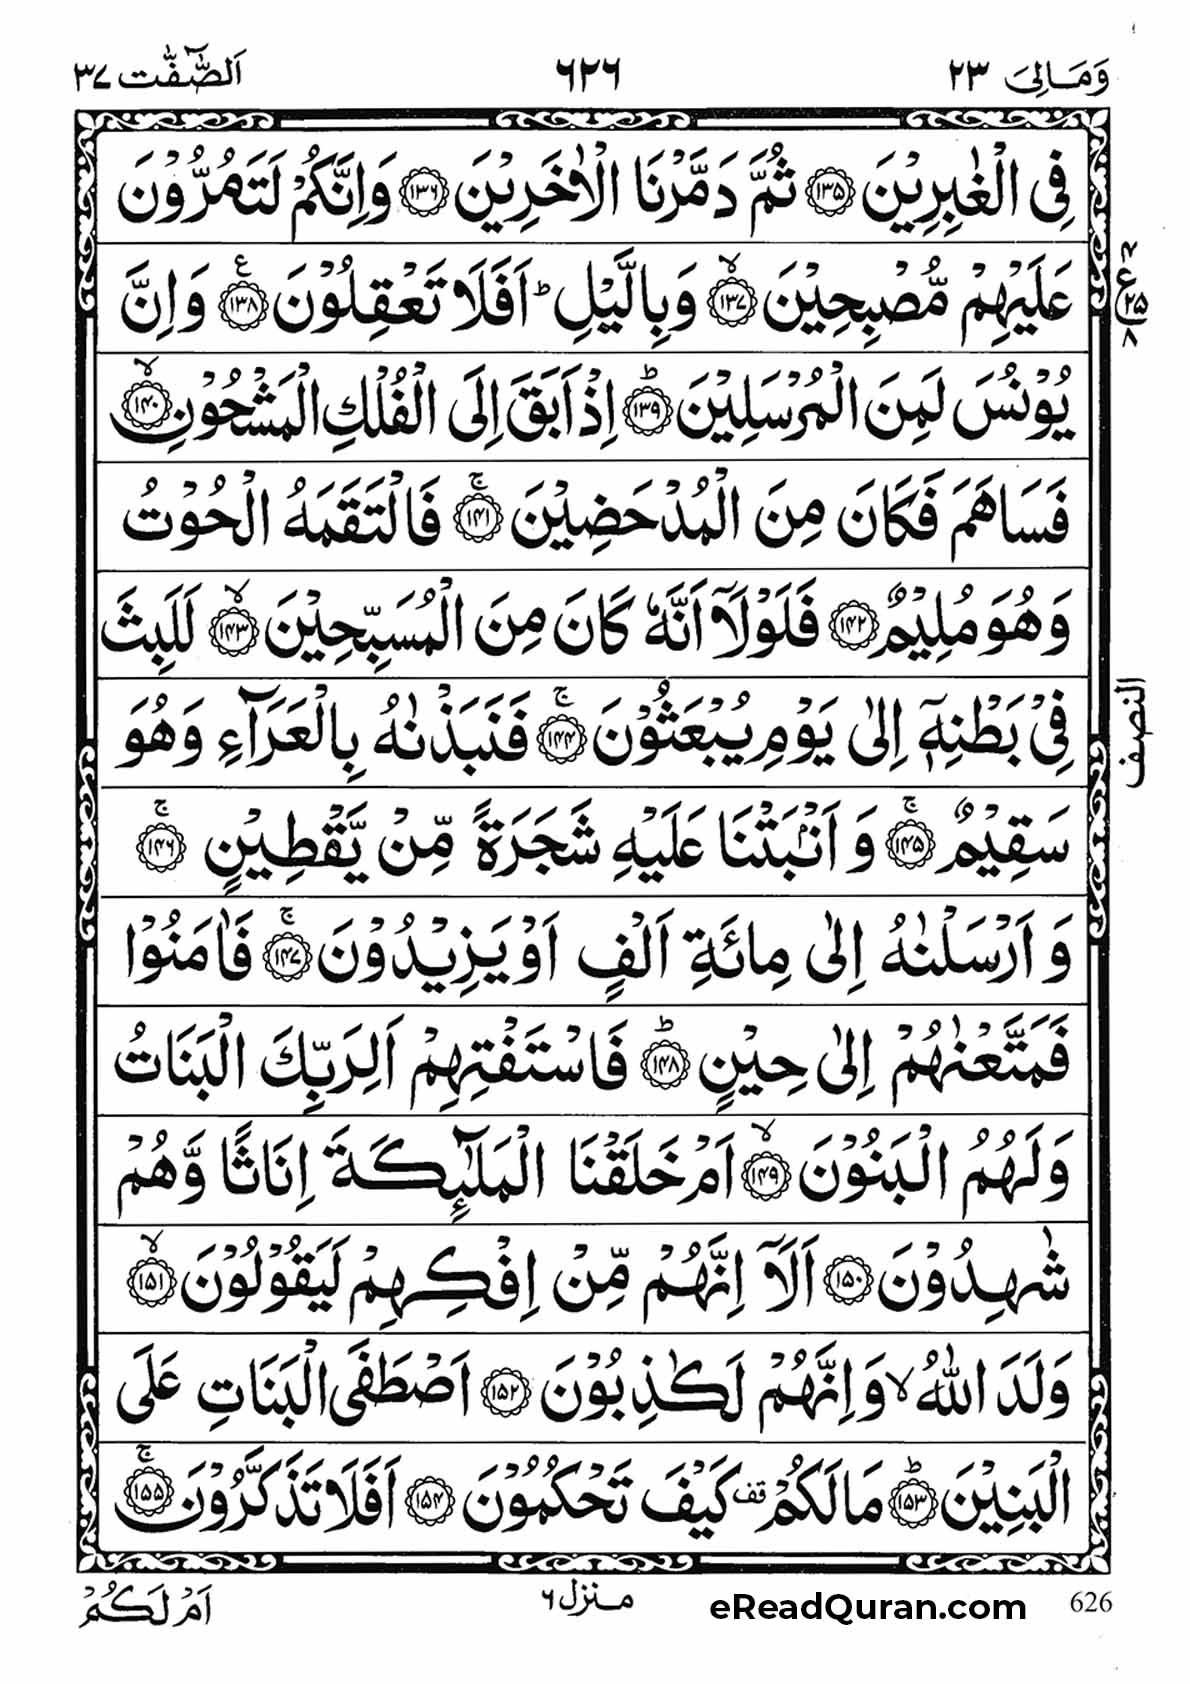 وَمَالِىَ ٢٣
٦٢٦
اَلصّٰٓفّٰت ٣٧
فِى الْغٰبِرِيْنَ ﴿١٣٥﴾ ثُمَّ دَمَّرْنَا الْاٰخَرِيْنَ ﴿١٣٦﴾ وَاِنَّكُمْ لَتَمُرُّوْنَ
عَلَيْهِمْ مُّصْبِحِيْنَ ۙ﴿١٣٧﴾ وَبِالَّيْلِ ؕ اَفَلَا تَعْقِلُوْنَ ﴿١٣٨﴾ ع وَاِنَّ
ع ٢٥ ٨
يُوْنُسَ لَمِنَ الْمُرْسَلِيْنَ ؕ﴿١٣٩﴾ اِذْ اَبَقَ اِلَى الْفُلْكِ الْمَشْحُوْنِ ۙ﴿١٤٠﴾
فَسَاهَمَ فَكَانَ مِنَ الْمُدْحَضِيْنَ ۚ﴿١٤١﴾ فَالْتَقَمَهُ الْحُوْتُ
وَهُوَ مُلِيْمٌ ﴿١٤٢﴾ فَلَوْلَاۤ اَنَّهٗ كَانَ مِنَ الْمُسَبِّحِيْنَ ۙ﴿١٤٣﴾ لَلَبِثَ
فِىْ بَطْنِهٖۤ اِلٰى يَوْمِ يُبْعَثُوْنَ ۚ﴿١٤٤﴾ فَنَبَذْنٰهُ بِالْعَرَآءِ وَهُوَ
النصف
سَقِيْمٌ ۚ﴿١٤٥﴾ وَ اَنْۢبَتْنَا عَلَيْهِ شَجَرَةً مِّنْ يَّقْطِيْنٍ ۚ﴿١٤٦﴾
وَ اَرْسَلْنٰهُ اِلٰى مِائَةِ اَلْفٍ اَوْ يَزِيْدُوْنَ ۚ﴿١٤٧﴾ فَاٰمَنُوْا
فَمَتَّعْنٰهُمْ اِلٰى حِيْنٍ ؕ﴿١٤٨﴾ فَاسْتَفْتِهِمْ اَلِرَبِّكَ الْبَنَاتُ
وَلَهُمُ الْبَنُوْنَ ۙ﴿١٤٩﴾ اَمْ خَلَقْنَا الْمَلٰٓئِكَةَ اِنَاثًا وَّهُمْ
شٰهِدُوْنَ ﴿١٥٠﴾ اَلَاۤ اِنَّهُمْ مِّنْ اِفْكِهِمْ لَيَقُوْلُوْنَ ۙ﴿١٥١﴾
وَلَدَ اللّٰهُ ۙ وَاِنَّهُمْ لَكٰذِبُوْنَ ﴿١٥٢﴾ اَصْطَفَى الْبَنَاتِ عَلَى
الْبَنِيْنَ ؕ﴿١٥٣﴾ مَا لَكُمْ قف كَيْفَ تَحْكُمُوْنَ ﴿١٥٤﴾ اَفَلَا تَذَكَّرُوْنَ ۚ﴿١٥٥﴾
اَمْ لَكُمْ
منزل ٦
eReadQuran.com
626